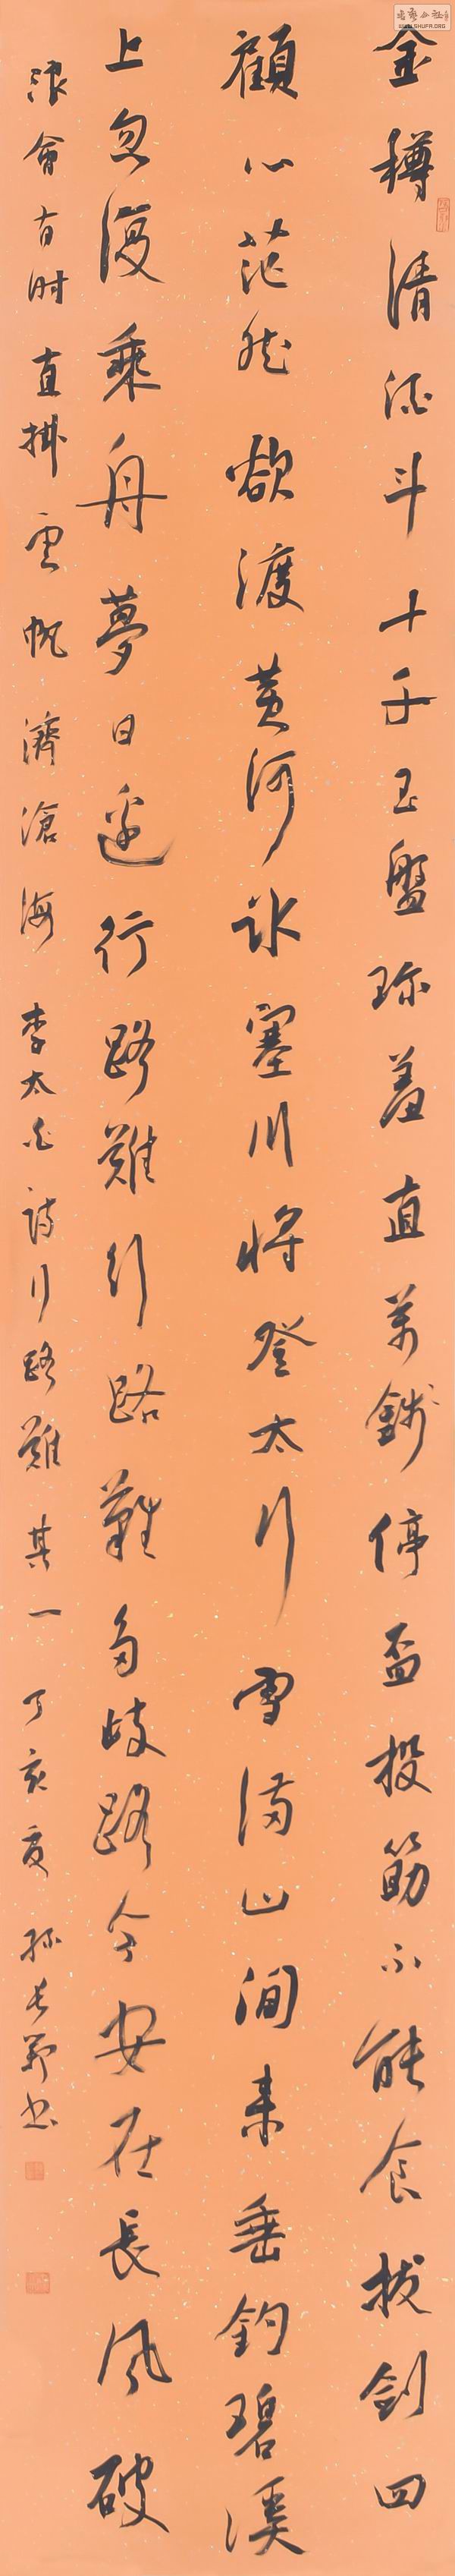 金樽清酒斗十千玉盤珍羞直萬錢停盃投筯不能食拔劍四
顧心茫然欲渡黄河冰塞川將登太行雪滿山閒來垂釣碧溪
上忽復乘舟夢日邊行路難行路難多歧路今安在長風破
浪會有時直掛雲帆濟滄海 李太白詩行路難其一 丁亥夏 孫長書
WWW.SHUFA.ORG